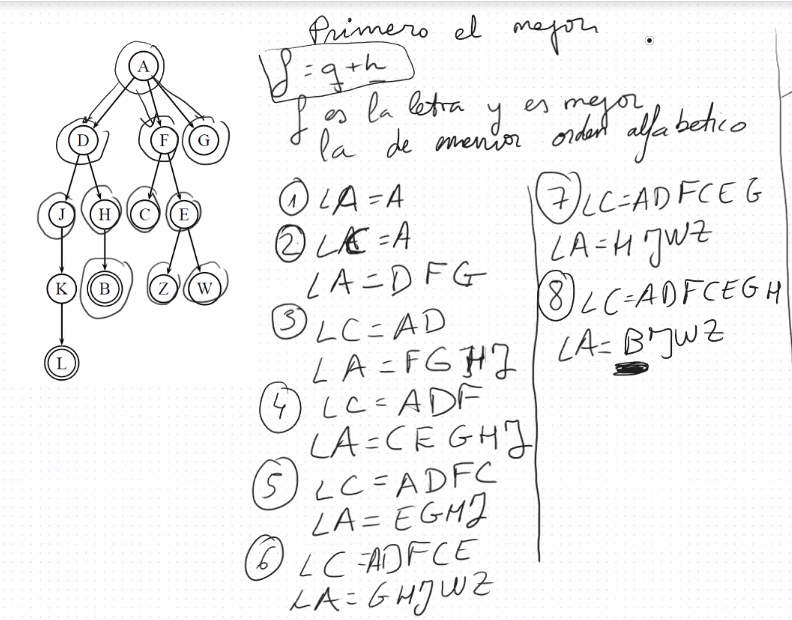 A
D F G
J H C E
K B Z W
L
Primero el mejor
f = g + h
f es la letra y es mejor
la de menor orden alfabetico
① LA = A
② LC = A
LA = D F G
③ LC = AD
LA = F G H J
④ LC = ADF
LA = C E G H J
⑤ LC = ADFC
LA = EGHJ
⑥ LC = ADFCE
LA = GHJWZ
⑦ LC = ADFCEG
LA = HJWZ
⑧ LC = ADFCEGH
LA = BJWZ